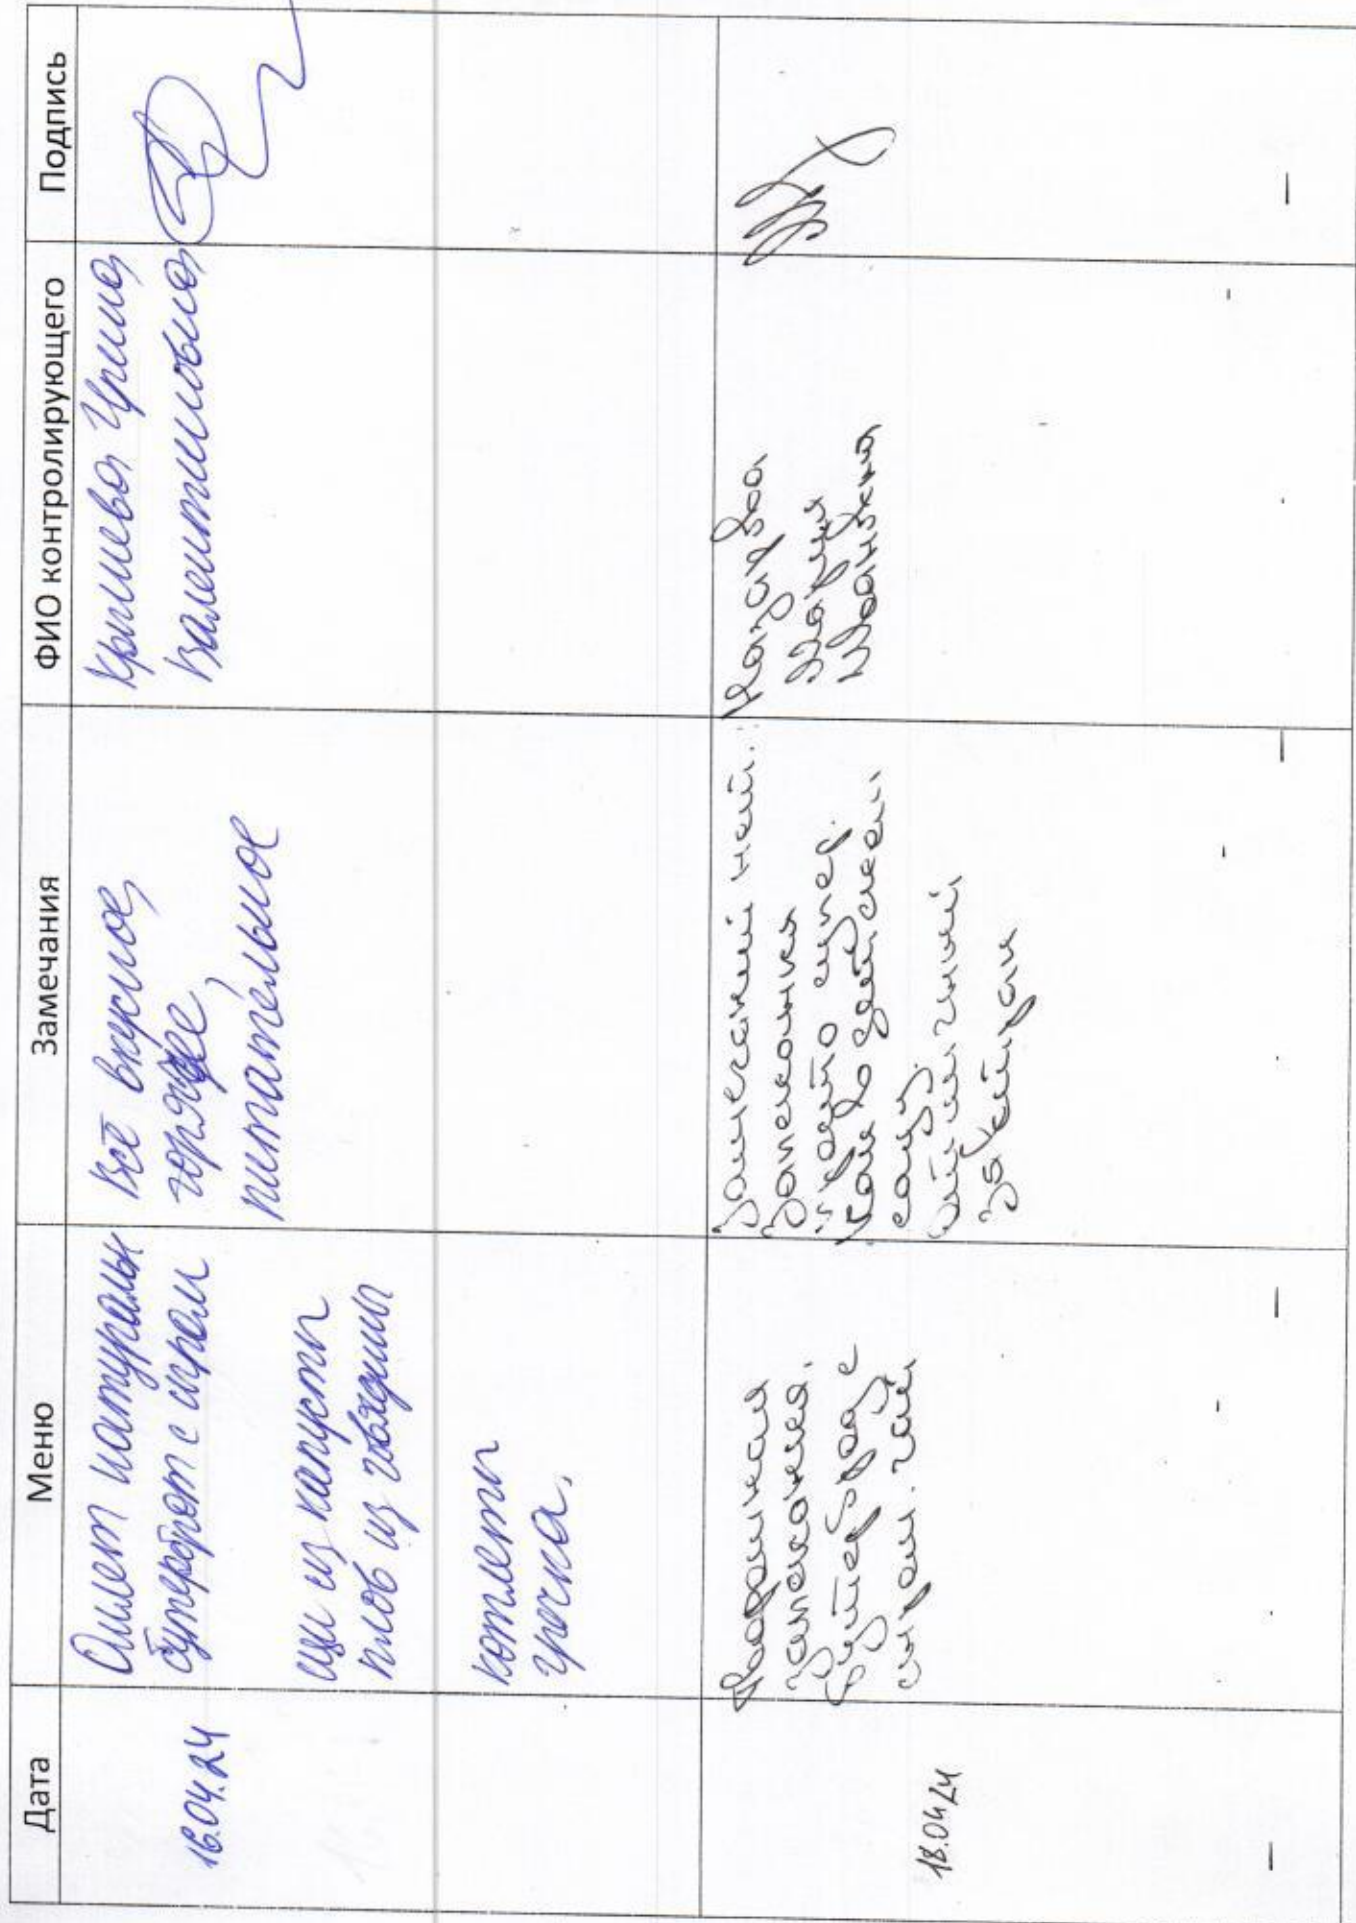 Дата
Меню
Замечания
ФИО контролирующего
Подпись
16.04.24
Омлет натуральн
бутерброт с сыром
щи из капусты
плов из говядины
котлеты
гречка.
Всё вкусное,
горячее,
питательное
Ирина
Валентиновна
18.04.24
Творожная
запеканка.
Бутерброд с
сыром. чай
Замечаний нет.
Запеканка
просто супер.
соус.
отличный
завтрак
Мария
Ивановна